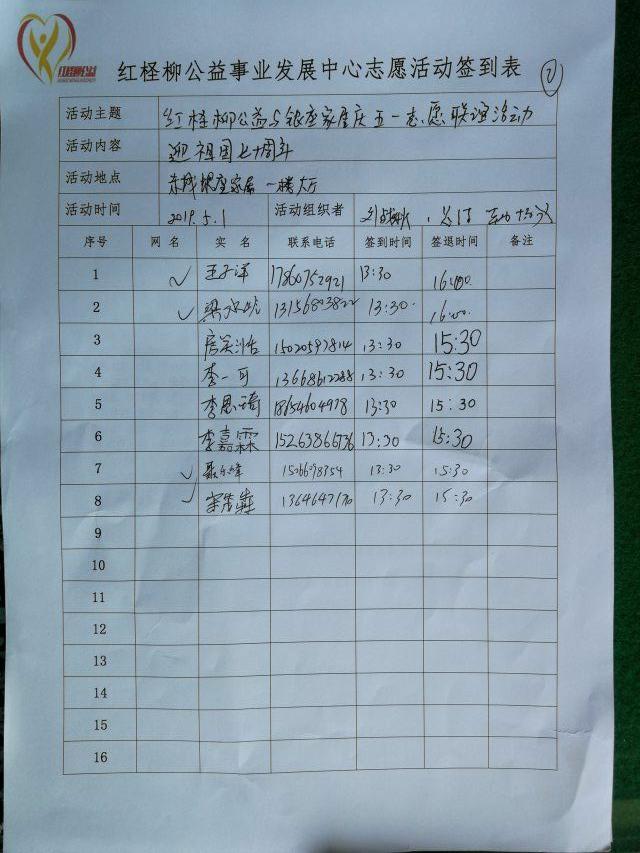 红柽柳公益
红柽柳公益事业发展中心志愿活动签到表 ②
活动主题 红柽柳公益与银座家居庆五一志愿联谊活动
活动内容 迎祖国七十周年
活动地点 东城银座家居 一楼大厅
活动时间 2019.5.1 活动组织者
序号 网名 实名 联系电话 签到时间 签退时间 备注
1 ✓ 王子洋 17860752921 13:30 16:00
2 ✓ 13156803822 13:30 16:00
3 15020597814 13:30 15:30
4 李一可 13668612288 13:30 15:30
5 李思琦 18654604978 13:30 15:30
6 李嘉霖 15263866736 13:30 15:30
7 ✓ 15066098354 13:30 15:30
8 ✓ 1364647170 13:30 15:30
9
10
11
12
13
14
15
16